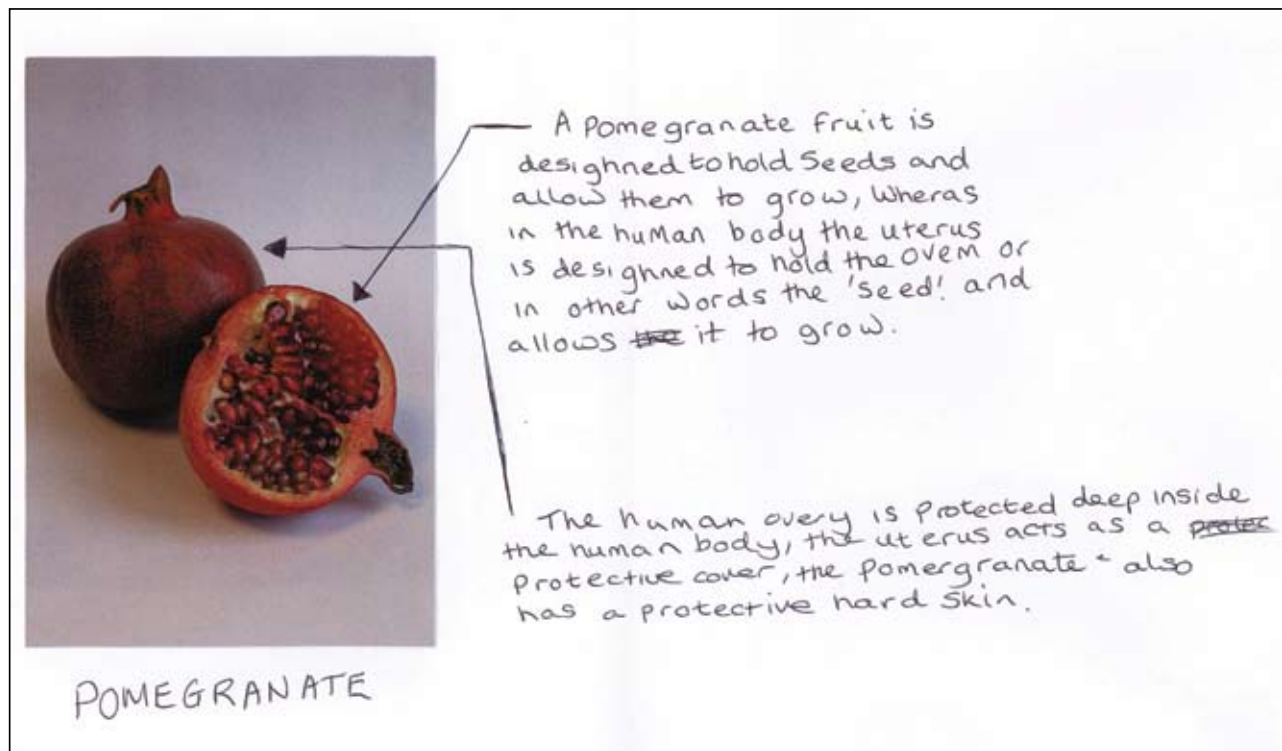 A Pomegranate fruit is
desighned to hold Seeds and
allow them to grow, Wheras
in the human body the uterus
is desighned to hold the ovem or
in other words the 'seed'. and
allows the it to grow.
The human overy is Protected deep inside
the human body, the uterus acts as a protec
Protective cover, the pomergranate also
has a protective hard skin.
POMEGRANATE